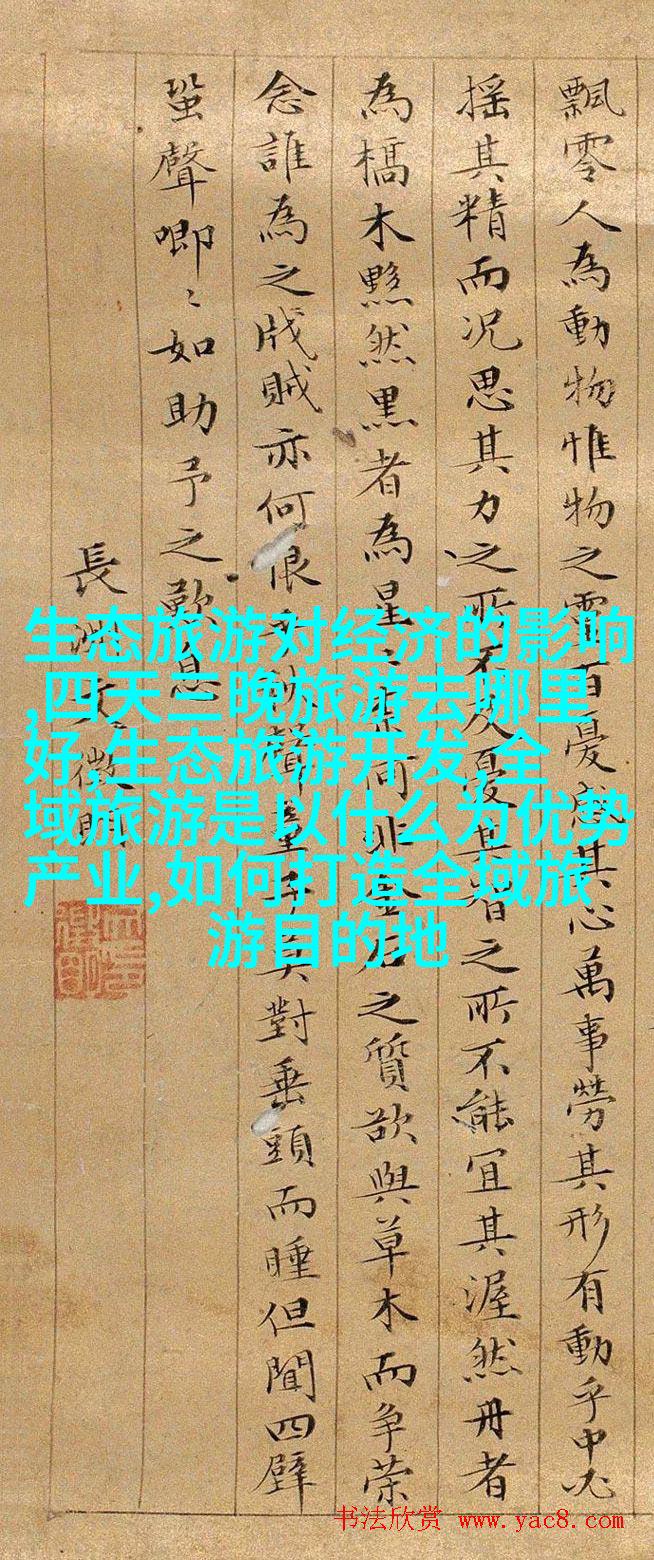 飄零人為動物惟物之靈百憂感其心萬事勞其形有動乎中必
搖其精而況思其力之所不及憂其智之所不能宜其渥然丹者
為槁木黟然黑者為星〻奈何非金石之質欲與草木而爭榮
念誰為之戕賊亦何恨乎秋聲童子莫對垂頭而睡但聞四壁
蛩聲唧〻如助予之歎息
長洲文徵明
生态旅游对经济的影响
,四天三晚旅游去哪里
好,生态旅游开发,全
域旅游是以什么为优势
产业,如何打造全域旅
游目的地
书法欣赏 www.yac8.com